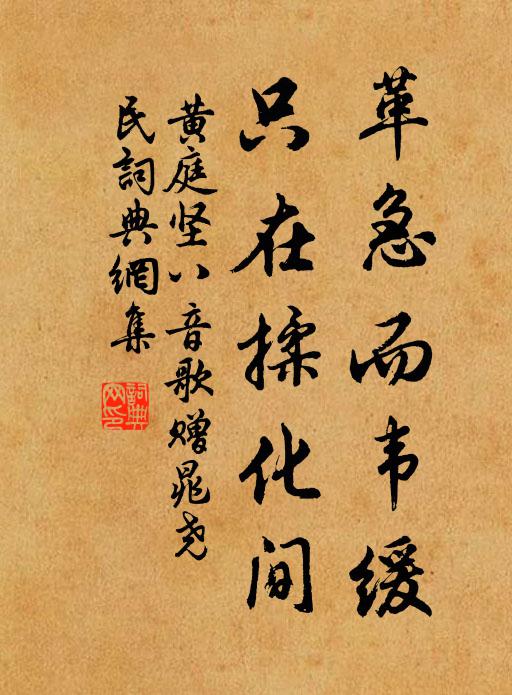 革急而韦缓
只在揉化间
黄庭坚八音歌赠晁尧
民詞典網集
詞典
网印